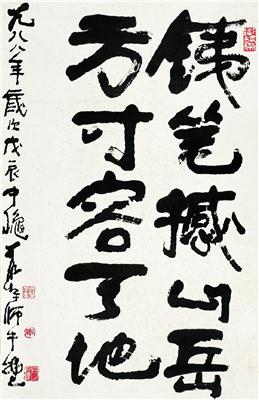 銕笔撼山岳
方寸容天地
一九八八年歲次戊辰中龝